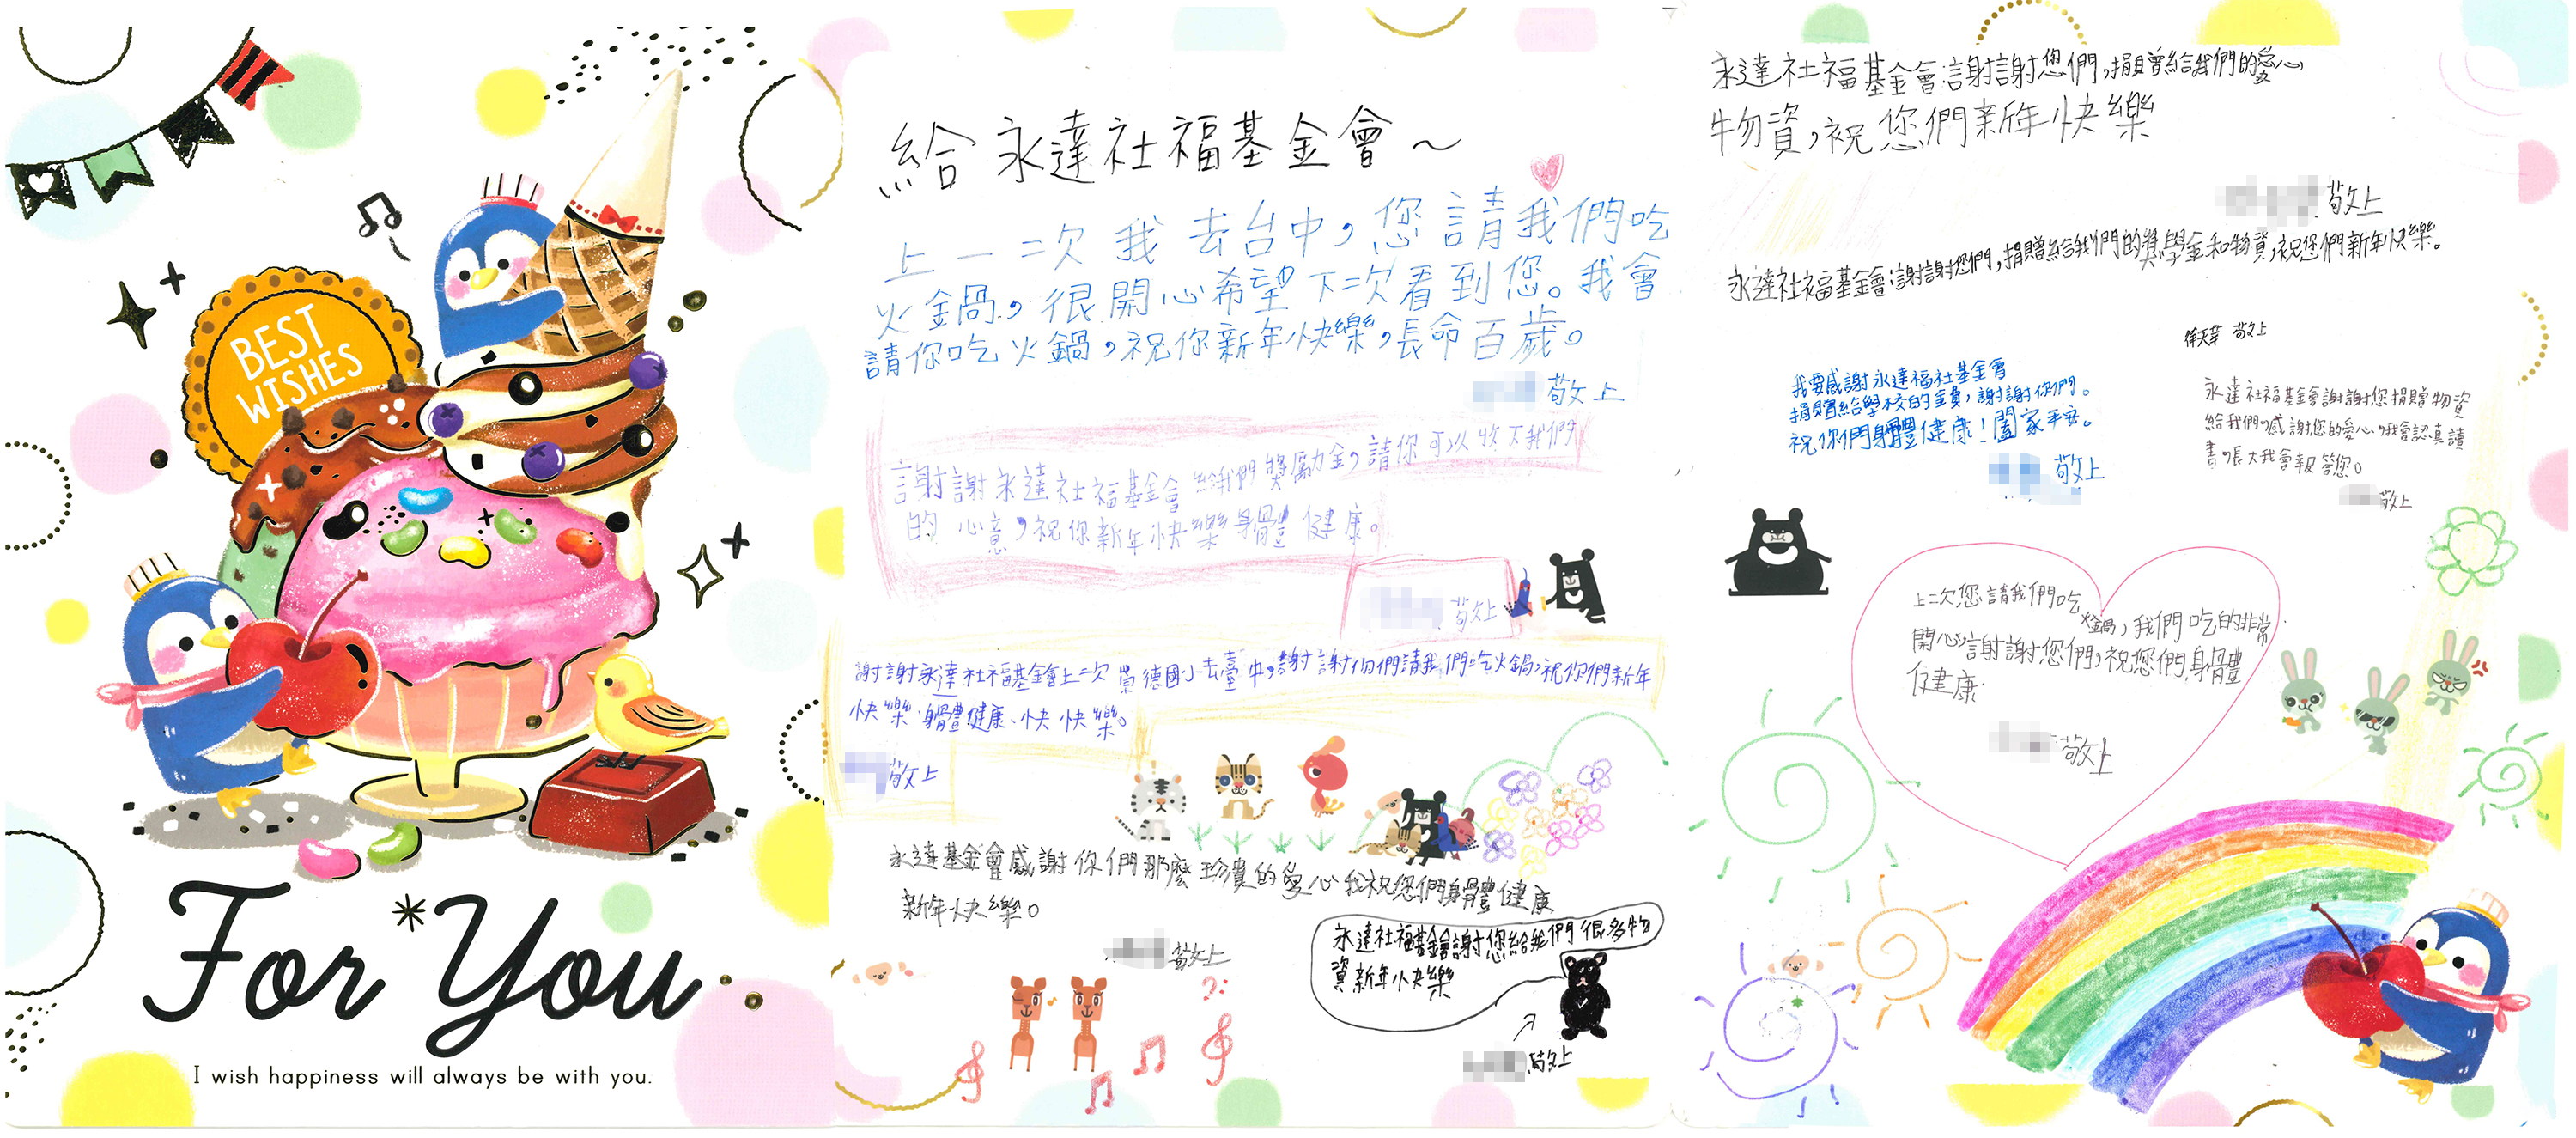 BEST
WISHES
For You
I wish happiness will always be with you.
給 永達社福基金會~
上一次我去台中，您請我們吃
火鍋，很開心希望下次看到您。我會
請你吃火鍋，祝你新年快樂，長命百歲。
敬上
謝謝永達社福基金會給我們獎勵金，請你可以收下我們
的心意，祝你新年快樂身體健康。
敬上
謝謝永達社福基金會上次崇德國小去臺中，謝謝你們請我們吃火鍋，祝你們新年
快樂、身體健康、快快樂。
敬上
永達基金會感謝你們那麼珍貴的愛心我祝您們身體健康
新年快樂。
敬上
永達社福基金會謝謝您給我們很多物
資新年快樂
敬上
永達社福基金會:謝謝您們，捐贈給我們的愛心
物資，祝您們新年快樂
敬上
永達社福基金會:謝謝您們，捐贈給我們的獎學金和物資，祝您們新年快樂。
敬上
我要感謝永達福社基金會
捐贈給學校的金費，謝謝你們。
祝你們身體健康！闔家平安。
敬上
永達社福基金會謝謝您捐贈物資
給我們，感謝您的愛心，我會認真讀
書，長大我會報答您。
敬上
上次您請我們吃
火鍋，我們吃的非常
開心謝謝您們，祝您們身體
健康
敬上